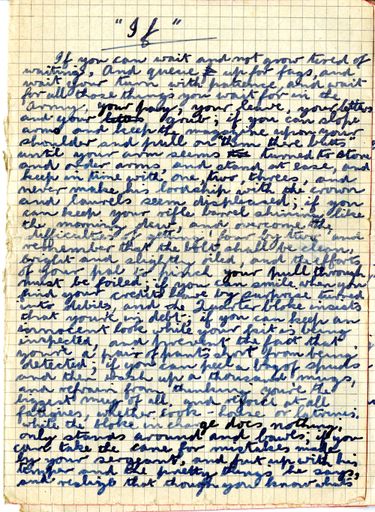 "If"
If you can wait and not grow tired of
waiting, And queue up for fags, and
wait your turn with patience, and wait
for all those things you wait for in the
Army, your pay, your leave, your letters
and your grub; if you can slope
arms and keep the magazine upon your
shoulder and pull on them there butts
until your arms seems turned to stone
and order arms and stand at ease, and
keep in time with one two threes, and
never make his lordship with the crown
and laurels seem displeased; if you
can keep your rifle barrel shining like
the morning dew and overcome the
difficulties of
remember that the bolt shall be clean
bright and slightly oiled, and the efforts
of your pal to pinch your pull through
must be foiled; if you can smile when you
find your credits have by turned
into debits and the bloke insists
that you're in debt; if you can keep an
innocent look while your kit is being
inspected, and prevent the fact that
you're a pair of pants short from being
detected; if you can peel a bag of spuds
and then wash up a thousand mugs,
and refrain from thinking you're the
biggest mug of all and at all
fatigues, whether cook-house or latrines.
while the bloke in charge does nothing,
only stands around and bawls; if you
can take the cane for mistakes made
by your sergeant, and put up with his
temper and the pretty things he says,
and realize that though you know